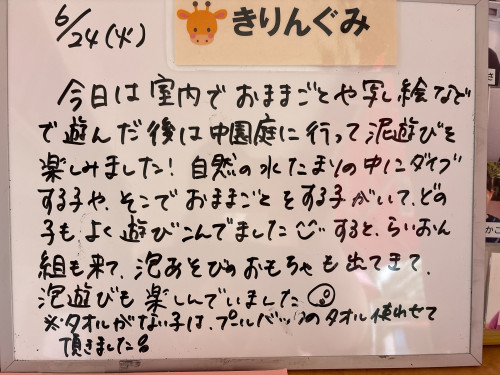 6/24(火)
きりんぐみ
今日は室内でおままごとや写し絵などで
で遊んだ後は中園庭に行って泥遊びを
楽しみました！自然の水たまりの中にダイブ
する子や、そこでおままごとをする子がいて、どの
子もよく遊びこんでました すると、らいおん
組も来て、泡あそびのおもちゃも出てきて、
泡遊びも楽しんでいました
※タオルがない子は、プールバックのタオル使わせて
頂きました
さ
かこ